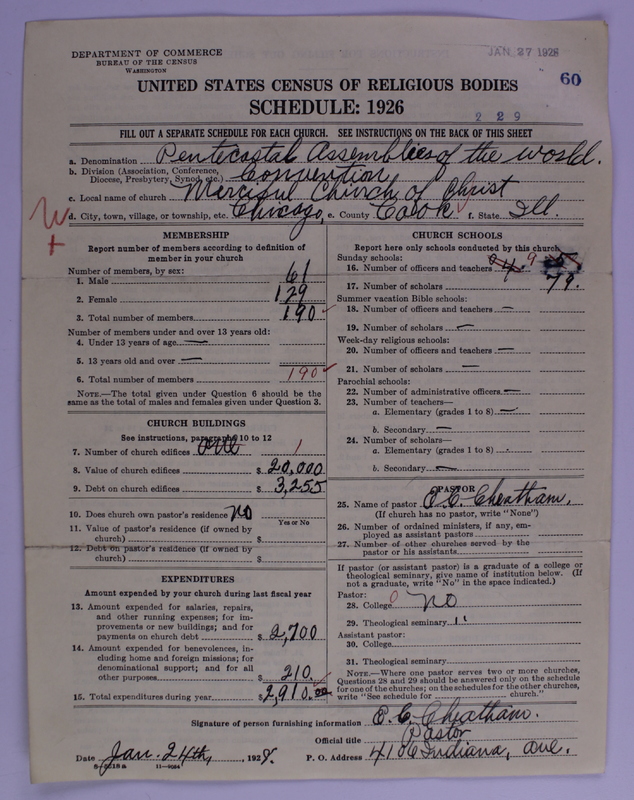 DEPARTMENT OF COMMERCE
BUREAU OF THE CENSUS
WASHINGTON
JAN 27 1928
60
UNITED STATES CENSUS OF RELIGIOUS BODIES
SCHEDULE: 1926
2 2 9
FILL OUT A SEPARATE SCHEDULE FOR EACH CHURCH. SEE INSTRUCTIONS ON THE BACK OF THIS SHEET
a. Denomination Pentecostal Assemblies of the world.
b. Division (Association, Conference, Diocese, Presbytery, Synod, etc.) Convention
c. Local name of church Merciful Church of Christ
d. City, town, village, or township, etc. Chicago, e. County Cook f. State Ill.
MEMBERSHIP
Report number of members according to definition of
member in your church
Number of members, by sex:
1. Male 61
2. Female 129
3. Total number of members 190
Number of members under and over 13 years old:
4. Under 13 years of age —
5. 13 years old and over —
6. Total number of members 190
NOTE.—The total given under Question 6 should be the
same as the total of males and females given under Question 3.
CHURCH BUILDINGS
See instructions, paragraphs 10 to 12
7. Number of church edifices one 1
8. Value of church edifices $ 20,000
9. Debt on church edifices $ 3,255
10. Does church own pastor's residence? No
Yes or No
11. Value of pastor's residence (if owned by
church) $
12. Debt on pastor's residence (if owned by
church) $
EXPENDITURES
Amount expended by your church during last fiscal year
13. Amount expended for salaries, repairs,
and other running expenses; for im-
provements or new buildings; and for
payments on church debt $ 2,700
14. Amount expended for benevolences, in-
cluding home and foreign missions; for
denominational support; and for all
other purposes 210.
15. Total expenditures during year $ 2,910.00
CHURCH SCHOOLS
Report here only schools conducted by this church
Sunday schools:
16. Number of officers and teachers 9
17. Number of scholars 79.
Summer vacation Bible schools:
18. Number of officers and teachers —
19. Number of scholars —
Week-day religious schools:
20. Number of officers and teachers —
21. Number of scholars —
Parochial schools:
22. Number of administrative officers —
23. Number of teachers—
a. Elementary (grades 1 to 8) —
b. Secondary —
24. Number of scholars—
a. Elementary (grades 1 to 8) —
b. Secondary —
PASTOR
25. Name of pastor E. C. Cheatham.
(If church has no pastor, write "None")
26. Number of ordained ministers, if any, em-
ployed as assistant pastors
27. Number of other churches served by the
pastor or his assistants
If pastor (or assistant pastor) is a graduate of a college or
theological seminary, give name of institution below. (If
not a graduate, write "No" in the space indicated.)
Pastor:
28. College 0 No
29. Theological seminary "
Assistant pastor:
30. College
31. Theological seminary
NOTE.—Where one pastor serves two or more churches,
Questions 28 and 29 should be answered only on the schedule
for one of the churches; on the schedules for the other churches,
write "See schedule for church."
Signature of person furnishing information E. C. Cheatham.
Official title Pastor
Date Jan. 24th, 1928. P. O. Address 4106 Indiana, ave.
11—9054